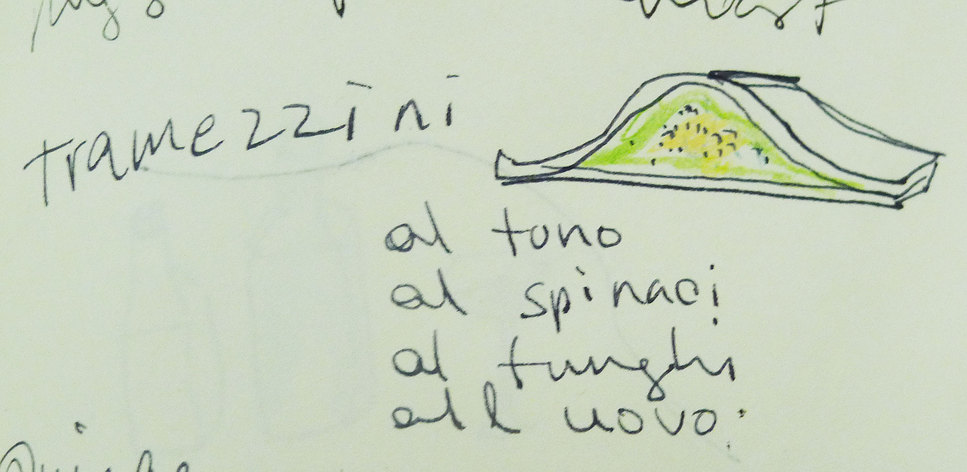 tramezzini
al tono
al spinaci
al funghi
all uovo